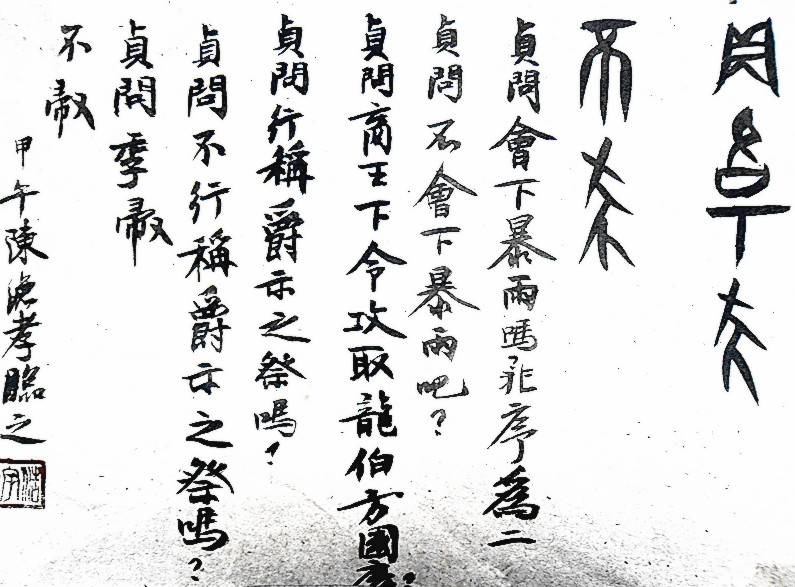 貞
不
貞問會下暴雨嗎？兆序為二
貞問不會下暴雨吧？
貞問商王下令攻取龍伯方國？
貞問行稱爵示之祭嗎？
貞問不行稱爵示之祭嗎？
貞問季
不
甲午陳孝臨之